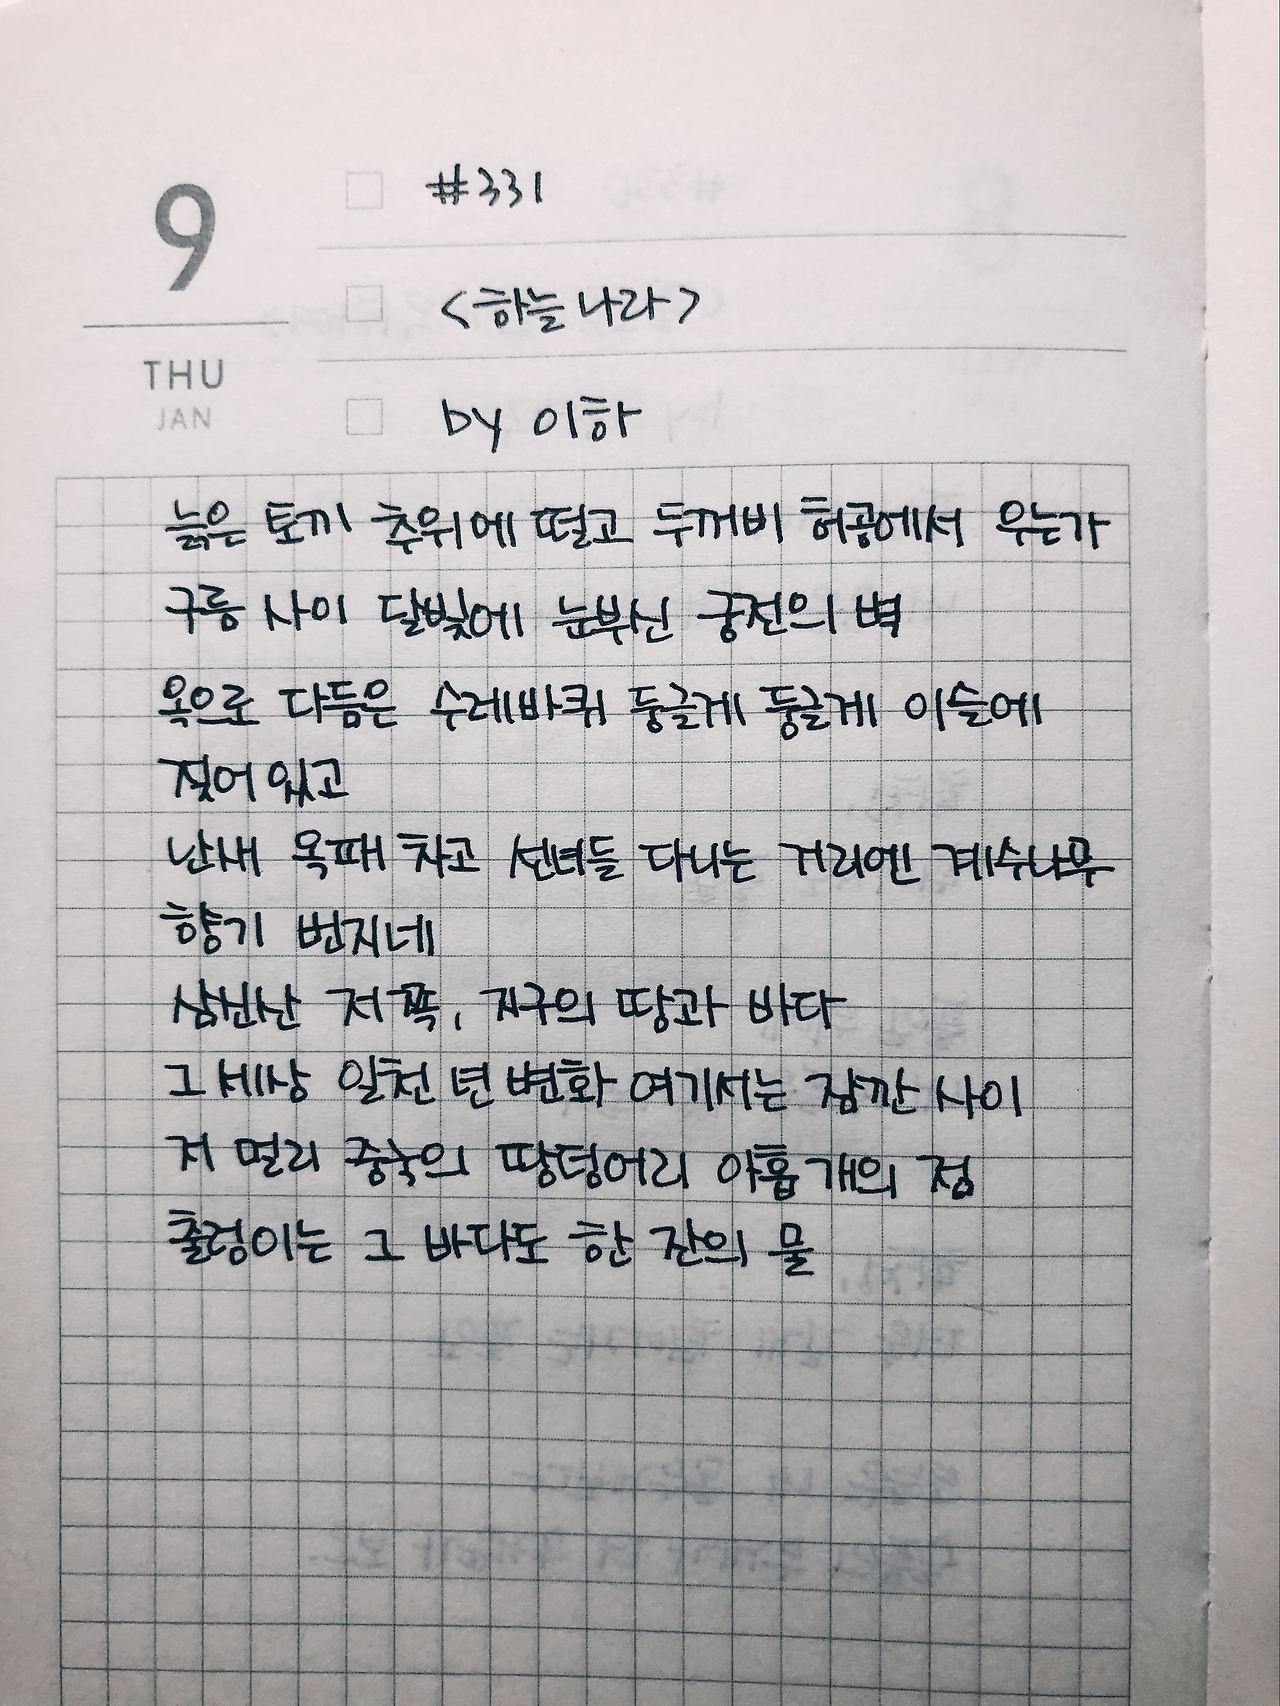 9
THU
JAN
#331
<하늘나라>
by 이하
늙은 토끼 추위에 떨고 두꺼비 허공에서 우는가
구름 사이 달빛에 눈부신 궁전의 벽
옥으로 다듬은 수레바퀴 둥글게 둥글게 이슬에
젖어있고
난새 옥패 차고 선녀들 다니는 거리엔 계수나무
향기 번지네
삼신산 저쪽, 지구의 땅과 바다
그 세상 일천 년 변화 여기서는 잠깐 사이
저 멀리 중국의 땅덩어리 아홉 개의 점
출렁이는 그 바다도 한 잔의 물